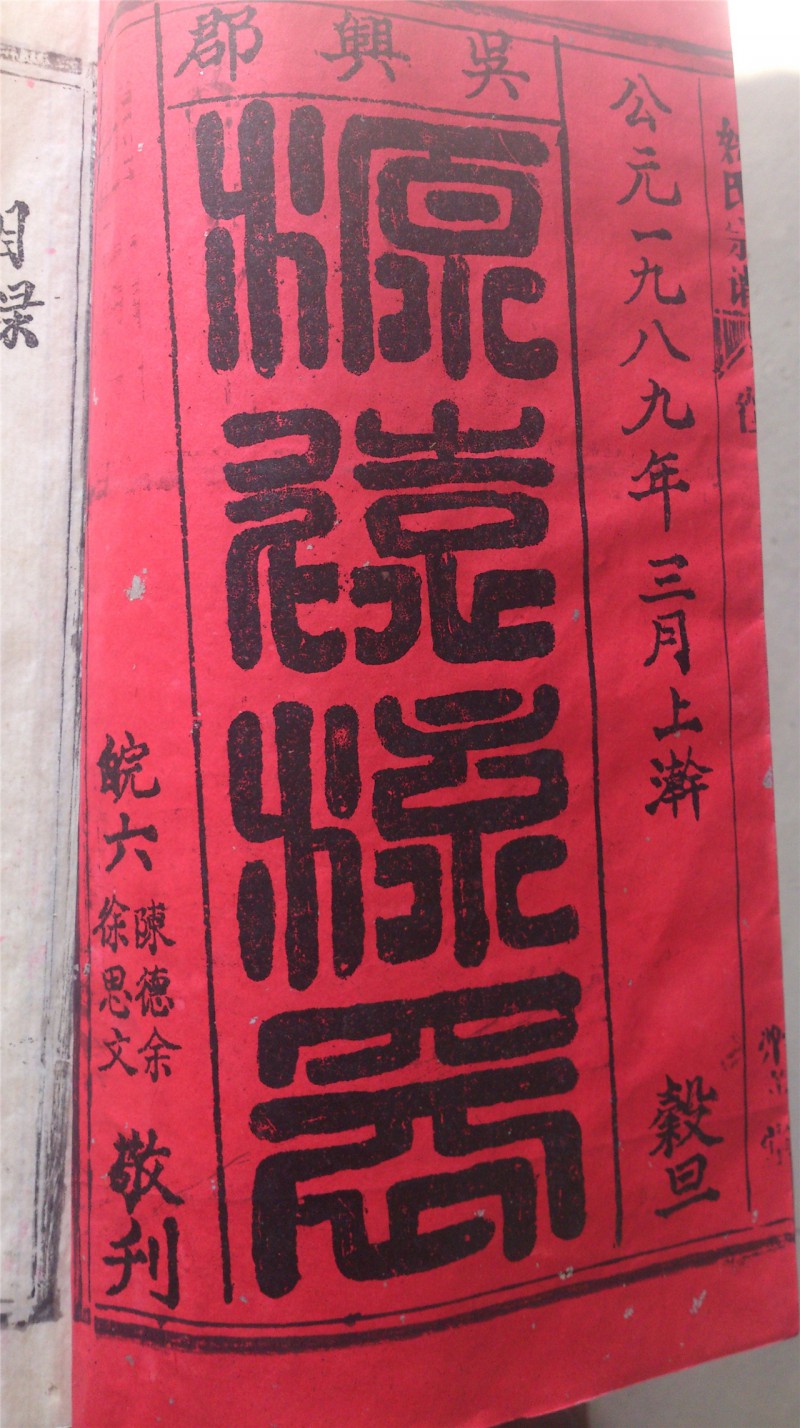 氏宗
公元一九八九年三月上澣
穀旦
吳興郡
源遠流長
皖六
陳德余
徐思文
敬刊